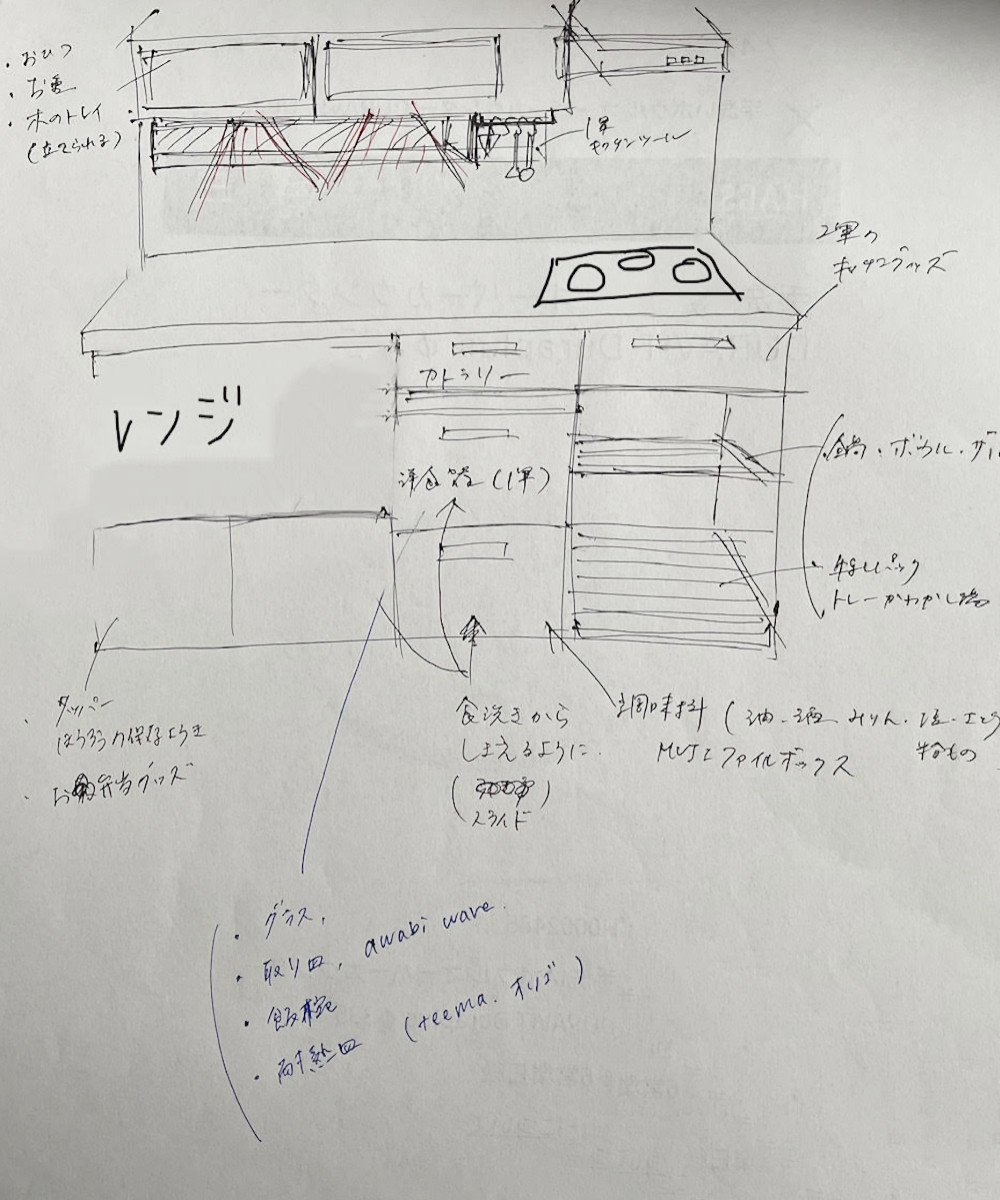 ・おひつ
・お重
・木のトレイ
(立てられる)
1軍
キッチンツール
2軍の
キッチングッズ
カトラリー
レンジ
洋食器(1軍)
鍋・ボウル・ザル
牛乳パック
トレーかわかし場
・タッパー
ほうろうの保存ようき
・お弁当グッズ
食洗きから
しまえるように
(スライド)
調味料(油・酒・みりん・
MUJI ファイルボックス
・グラス,
・取り皿, awabi ware.
・飯椀
・耐熱皿 (teema. オリゴ)